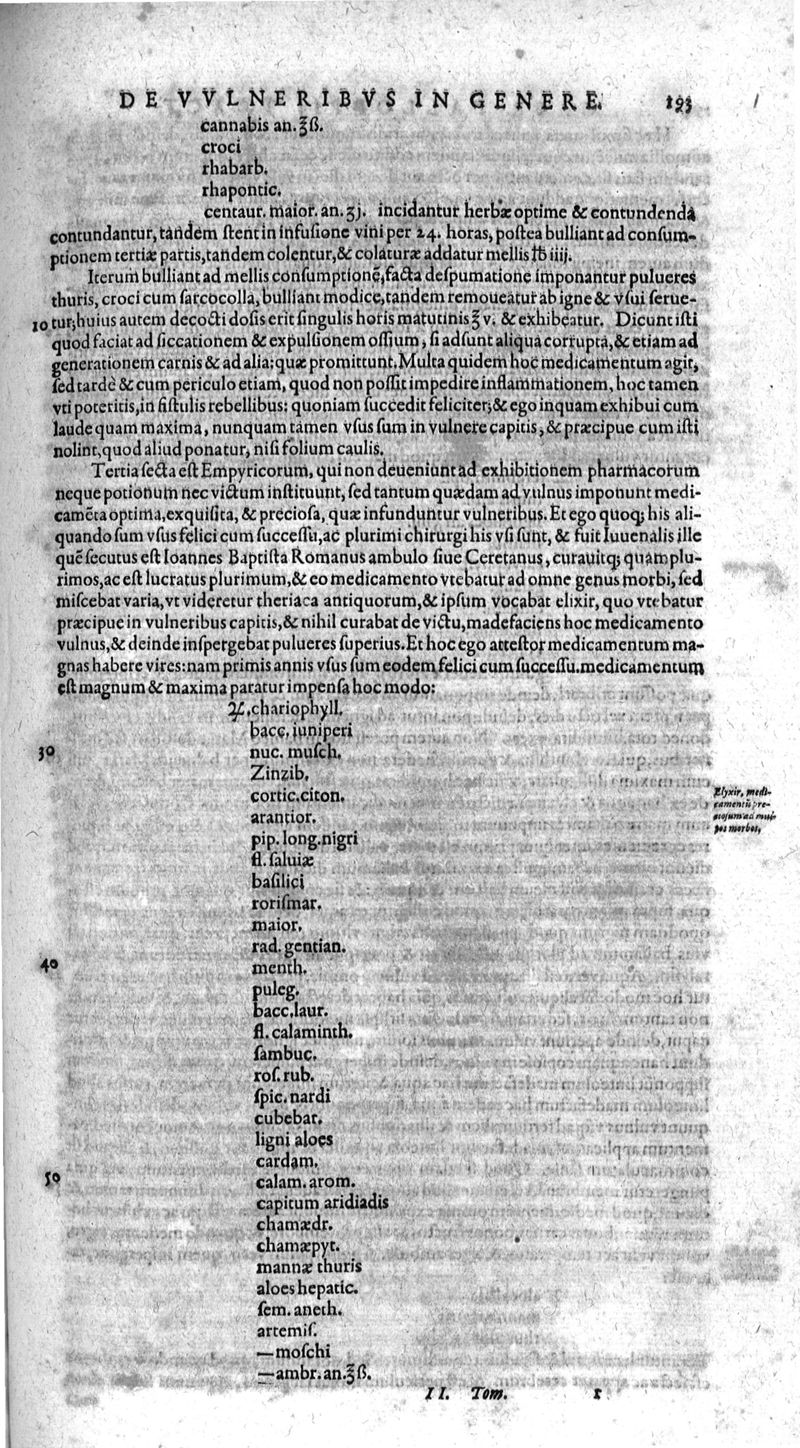 DE VVLNERIBVS IN GENERE. 193
cannabis an.℥ß.
croci
rhabarb.
rhapontic.
centaur. maior. an. ʒj. incidantur herbæ optime & contundenda
contundantur, tandem ſtent in infuſione vini per 24. horas, poſtea bulliant ad conſum-
ptionem tertiæ partis, tandem colentur, & colaturæ addatur mellis ℔ iiij.
Iterum bulliant ad mellis conſumptionē, facta deſpumatione imponantur pulueres
thuris, croci cum ſarcocolla, bulliant modice, tandem remoueatur ab igne & vſui ſerue-
10 tur; huius autem decocti doſis erit ſingulis horis matutinis ℥ v. & exhibeatur. Dicunt iſti
quod faciat ad ſiccationem & expulſionem oſſium, ſi adſunt aliqua corrupta, & etiam ad
generationem carnis & ad alia: quæ promittunt. Multa quidem hoc medicamentum agit,
ſed tardè & cum periculo etiam, quod non poſſit impedire inflammationem, hoc tamen
vti poteritis, in fiſtulis rebellibus: quoniam ſuccedit feliciter; & ego inquam exhibui cum
laude quam maxima, nunquam tamen vſus ſum in vulnere capitis, & præcipue cum iſti
nolint, quod aliud ponatur, niſi folium caulis.
Tertia ſecta eſt Empyricorum, qui non deueniunt ad exhibitionem pharmacorum
neque potionum nec victum inſtituunt, ſed tantum quædam ad vulnus imponunt medi-
camēta optima, exquiſita, & precioſa, quæ infunduntur vulneribus. Et ego quoq; his ali-
quando ſum vſus felici cum ſucceſſu, ac plurimi chirurgi his vſi ſunt, & fuit Iuuenalis ille
quē ſecutus eſt Ioannes Baptiſta Romanus ambulo ſiue Ceretanus, curauitq; quam plu-
rimos, ac eſt lucratus plurimum, & eo medicamento vtebatur ad omne genus morbi, ſed
miſcebat varia, vt videretur theriaca antiquorum, & ipſum vocabat elixir, quo vtebatur
præcipue in vulneribus capitis, & nihil curabat de victu, madefaciens hoc medicamento
vulnus, & deinde inſpergebat pulueres ſuperius. Et hoc ego atteſtor medicamentum ma-
gnas habere vires: nam primis annis vſus ſum eodem felici cum ſucceſſu. medicamentum
eſt magnum & maxima paratur impenſa hoc modo:
℞. chariophyll.
bacc. iuniperi
30 nuc. muſch.
Zinzib.
cortic. citon.
Elyxir, medi-
camentū pre-
tioſum ad mul-
tos morbos,
arantior.
pip. long. nigri
fl. ſaluiæ
baſilici
roriſmar.
maior.
rad. gentian.
40 menth.
puleg.
bacc. laur.
fl. calaminth.
ſambuc.
roſ. rub.
ſpic. nardi
cubebar.
ligni aloes
cardam.
50 calam. arom.
capitum aridiadis
chamædr.
chamæpyt.
mannæ thuris
aloes hepatic.
ſem. aneth.
artemiſ.
—moſchi
—ambr. an.℥ß.
II. Tom. r